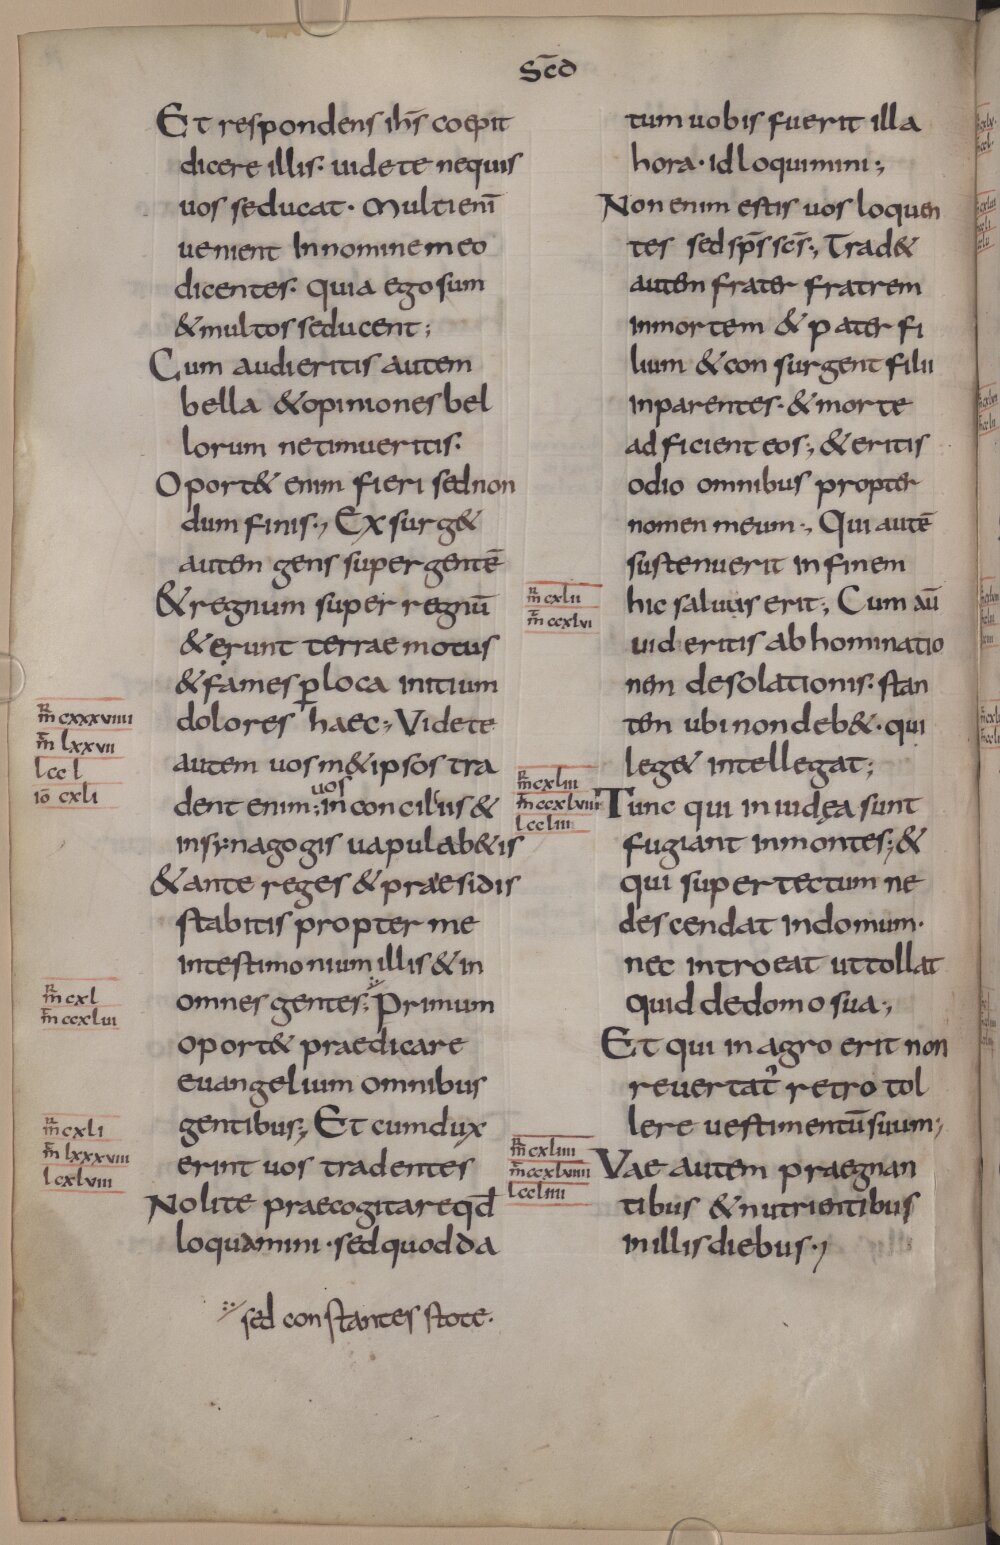 Scd̄
Et respondens ihs̄ coepit
dicere illis· uidete nequis
uos seducat· Multi enī
uenient In nomine meo
dicentes· quia ego sum
& multos seducent;
Cum audieritis autem
bella & opiniones bel
lorum ne timueritis·
Oport& enim fieri sed non
dum finis·, Exsurg&
autem gens super gentē
& regnum super regnū
& erunt terrae motus
& fames ꝑ loca initium
dolores haec·, Videte
autem uos m&ipsos tra
dent enim·, uos in conciliis &
in synagogis uapulab&is
& ante reges & praesidis
stabitis propter me
in testimonium illis & in
omnes gentes·, Primum
oport& praedicare
euangelium omnibus
gentibus·, Et cum dux
erint uos tradentes
Nolite praecogitare qd̄
loquamini· sed quod da
sed constantes stote·
m̄ cxxxviiii
m̄ lxxvii
l cc l
iō cxli
m̄ cxl
m̄ ccxlui
m̄ cxli
m̄ lxxxviii
l cxlviii
tum uobis fuerit illa
hora· id loquimini·,
Non enim estis uos loquen
tes sed sp̄s sc̄s·, Trad&
autem frater fratrem
in mortem & pater fi
lium & consurgent filii
in parentes· & morte
adficient eos·, & eritis
odio omnibus propter
nomen meum·, Qui autē
sustenuerit in finem
hic saluus erit·, Cum aū
uideritis abhominatio
nem desolationis· stan
tem ubi non deb&· qui
leg& intellegat;
Tunc qui in iudęa sunt
fugiant in montes·, &
qui super tectum ne
descendat in domum·
nec introeat ut tollat
quid de domo sua·,
Et qui in agro erit non
reuertat᷒ retro tol
lere uestimentū suum·,
Vae autem praegnan
tibus & nutrientibus
in illis diebus·,
m̄ cxlii
m̄ ccxlvi
m̄ cxliii
m̄ ccxlviii
l ccliii
m̄ cxliiii
m̄ ccxlviiii
l ccliiii